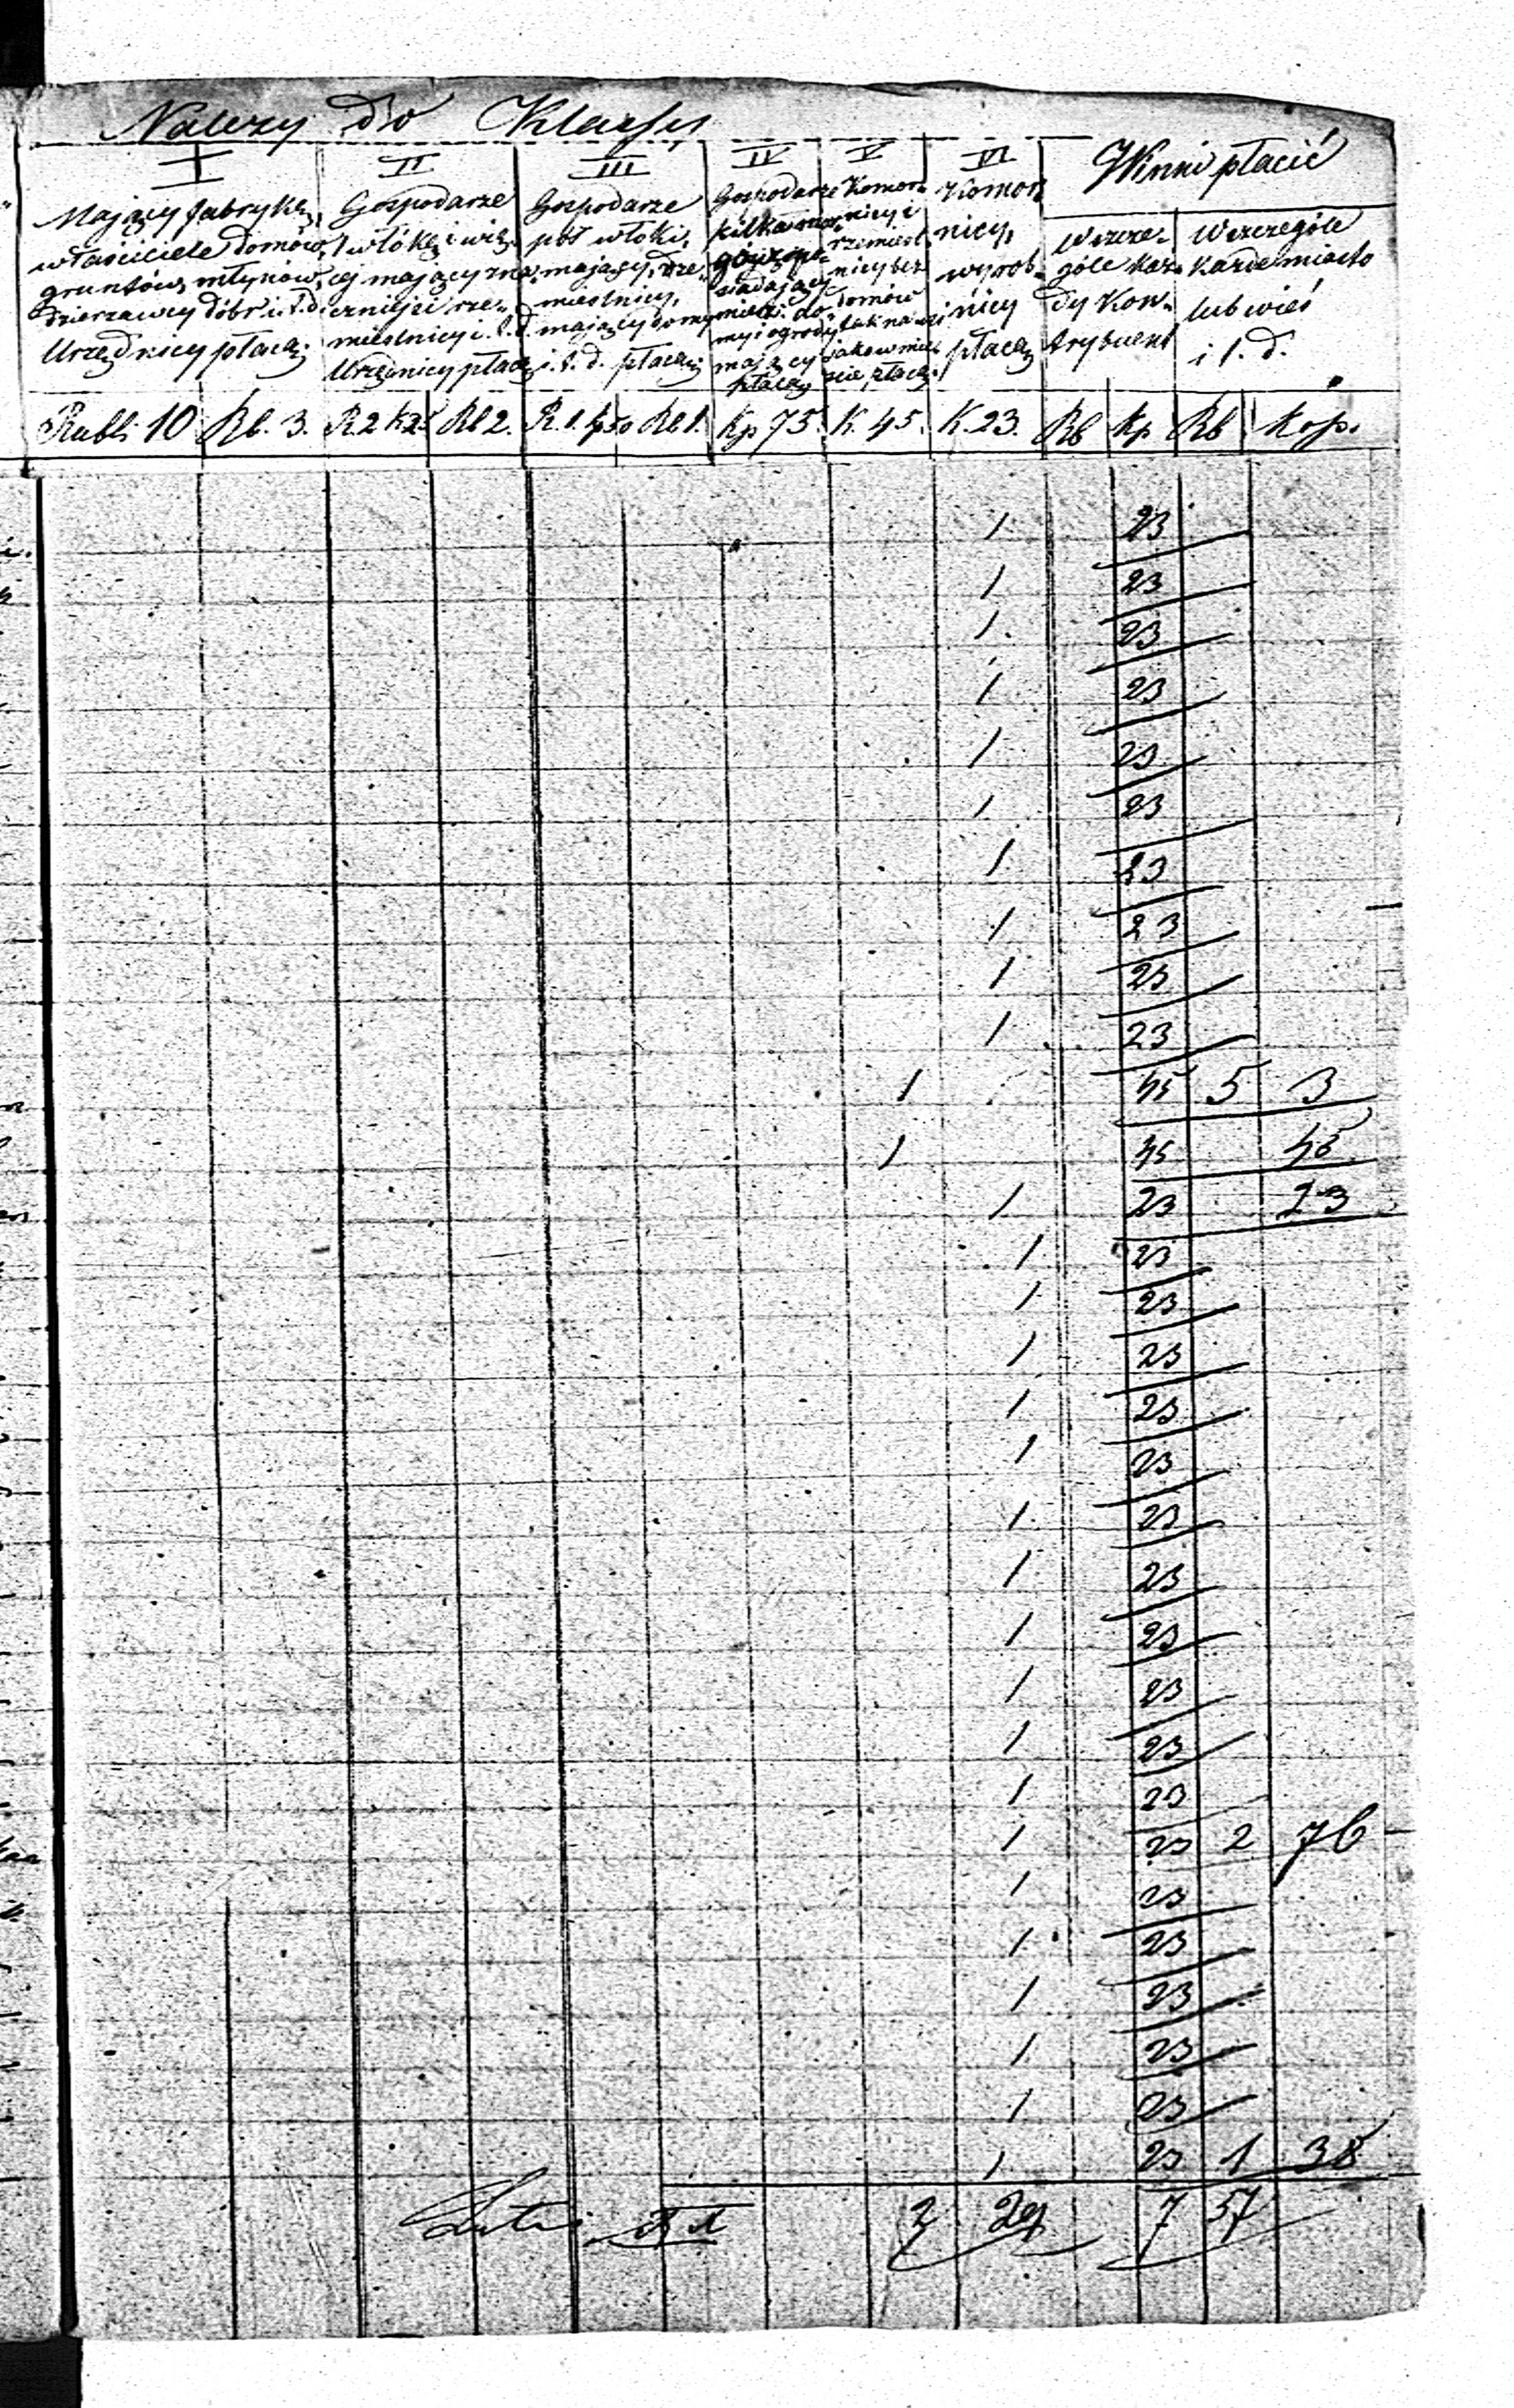 Należy do Klassy
I II III IV V VI Winni płacić
Mający fabrykę,
właściciele domów,
gruntów, młynów,
dzierżawcy dóbr i t.d.
Urzędnicy płacą
Gospodarze
1 włókę i wię-
cej mający zna-
czniejsi rze-
mieślnicy i t.d.
Urzędnicy płacą
Gospodarze
pół włóki,
mający, rze-
mieślnicy,
mający domy
i t. d. płacą
Gospodarze
kilka mor-
gów po-
siadający
miesz. do-
my i ogrody
mający
płacą
Komor-
nicy i
rzemieśl-
nicy bez
domów
tak na wsi
jako w mieś-
cie płacą
Komor-
nicy,
wyrob-
nicy
płacą
Wszcze-
góle każ-
dy Kon-
trybuent
Wszczególe
każde miasto
lub wieś
i t. d.
Rubli 10 Rb. 3. R. 2 k 25 Rb 2. R. 1. k 50 Rb 1. Kp 75. K. 45. K. 23. Rb Kp Rb Kop.
1 23
1 23
1. 23
1 23
1 23
1 23
1 23
1 23
1 23
1 23
1 45 5 3
1 45 45
1 23 23
1 23
1 23
1 23
1 23
1 23
1. 23
1 23
1 23
1 23
1 23
1 23
1 23 2 76
1 23
1. 23
1 23
1. 23
1 23
1 23 1 38
Latus 2 29 7 57